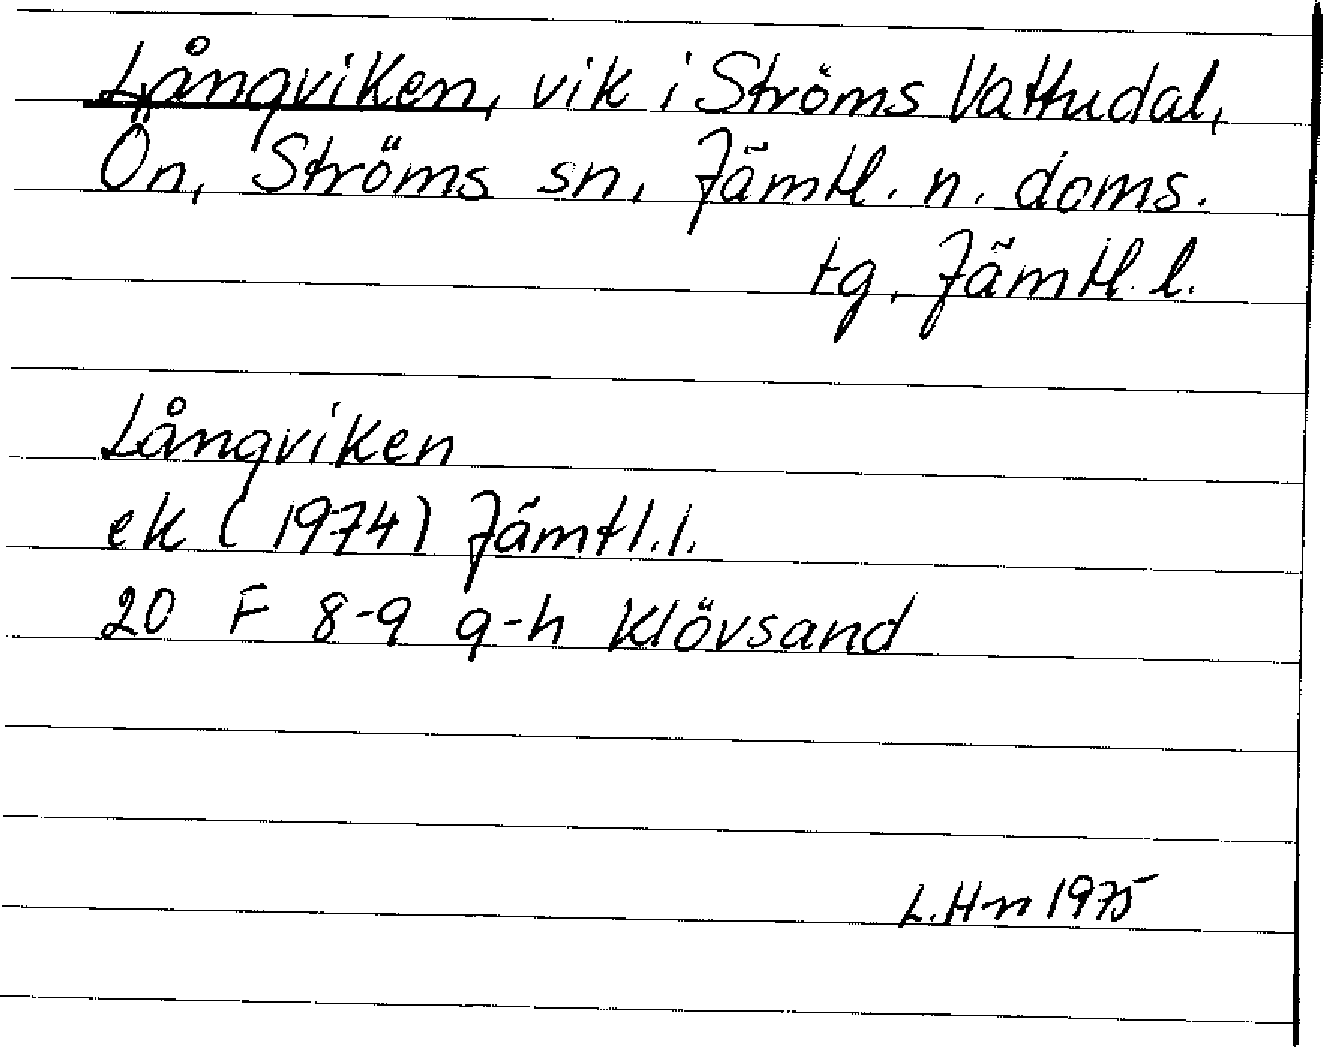 Långviken, vik i Ströms Vattudal,
Ön, Ströms sn, Jämtl. n. doms.
tg, Jämtl. l.
Långviken
ek (1974) Jämtl. l.
20 F 8-9 g-h Klövsand
L. H-n 1975